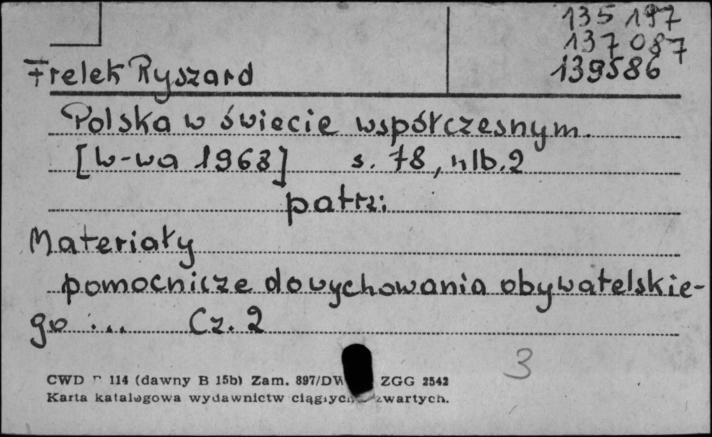 135 197
137 087
139586
Frelek Ryszard
Polska w świecie współczesnym.
[W-wa 1968] s. 78, nlb. 2
patrz:
Materiały
pomocnicze do wychowania obywatelskie-
go ... Cz. 2
3
CWD 114 (dawny B 15b) Zam. 897/DW ZGG 2542
Karta katalogowa wydawnictw zwartych.